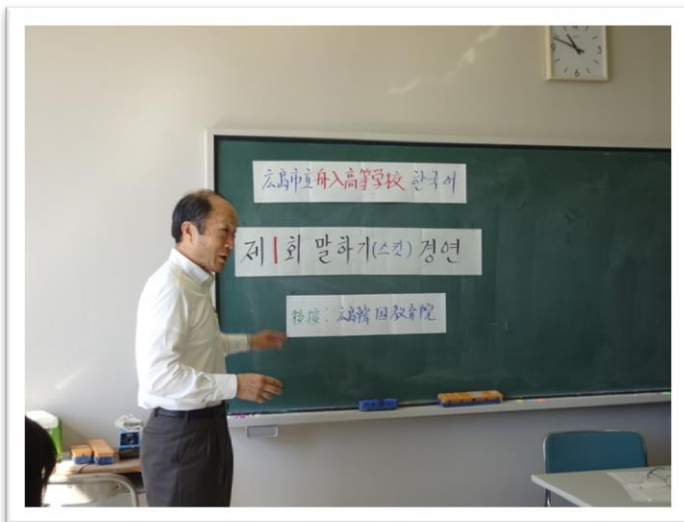 広島市立舟入高等学校 한국어
제1회 말하기(스킷) 경연
後援: 広島韓国教育院